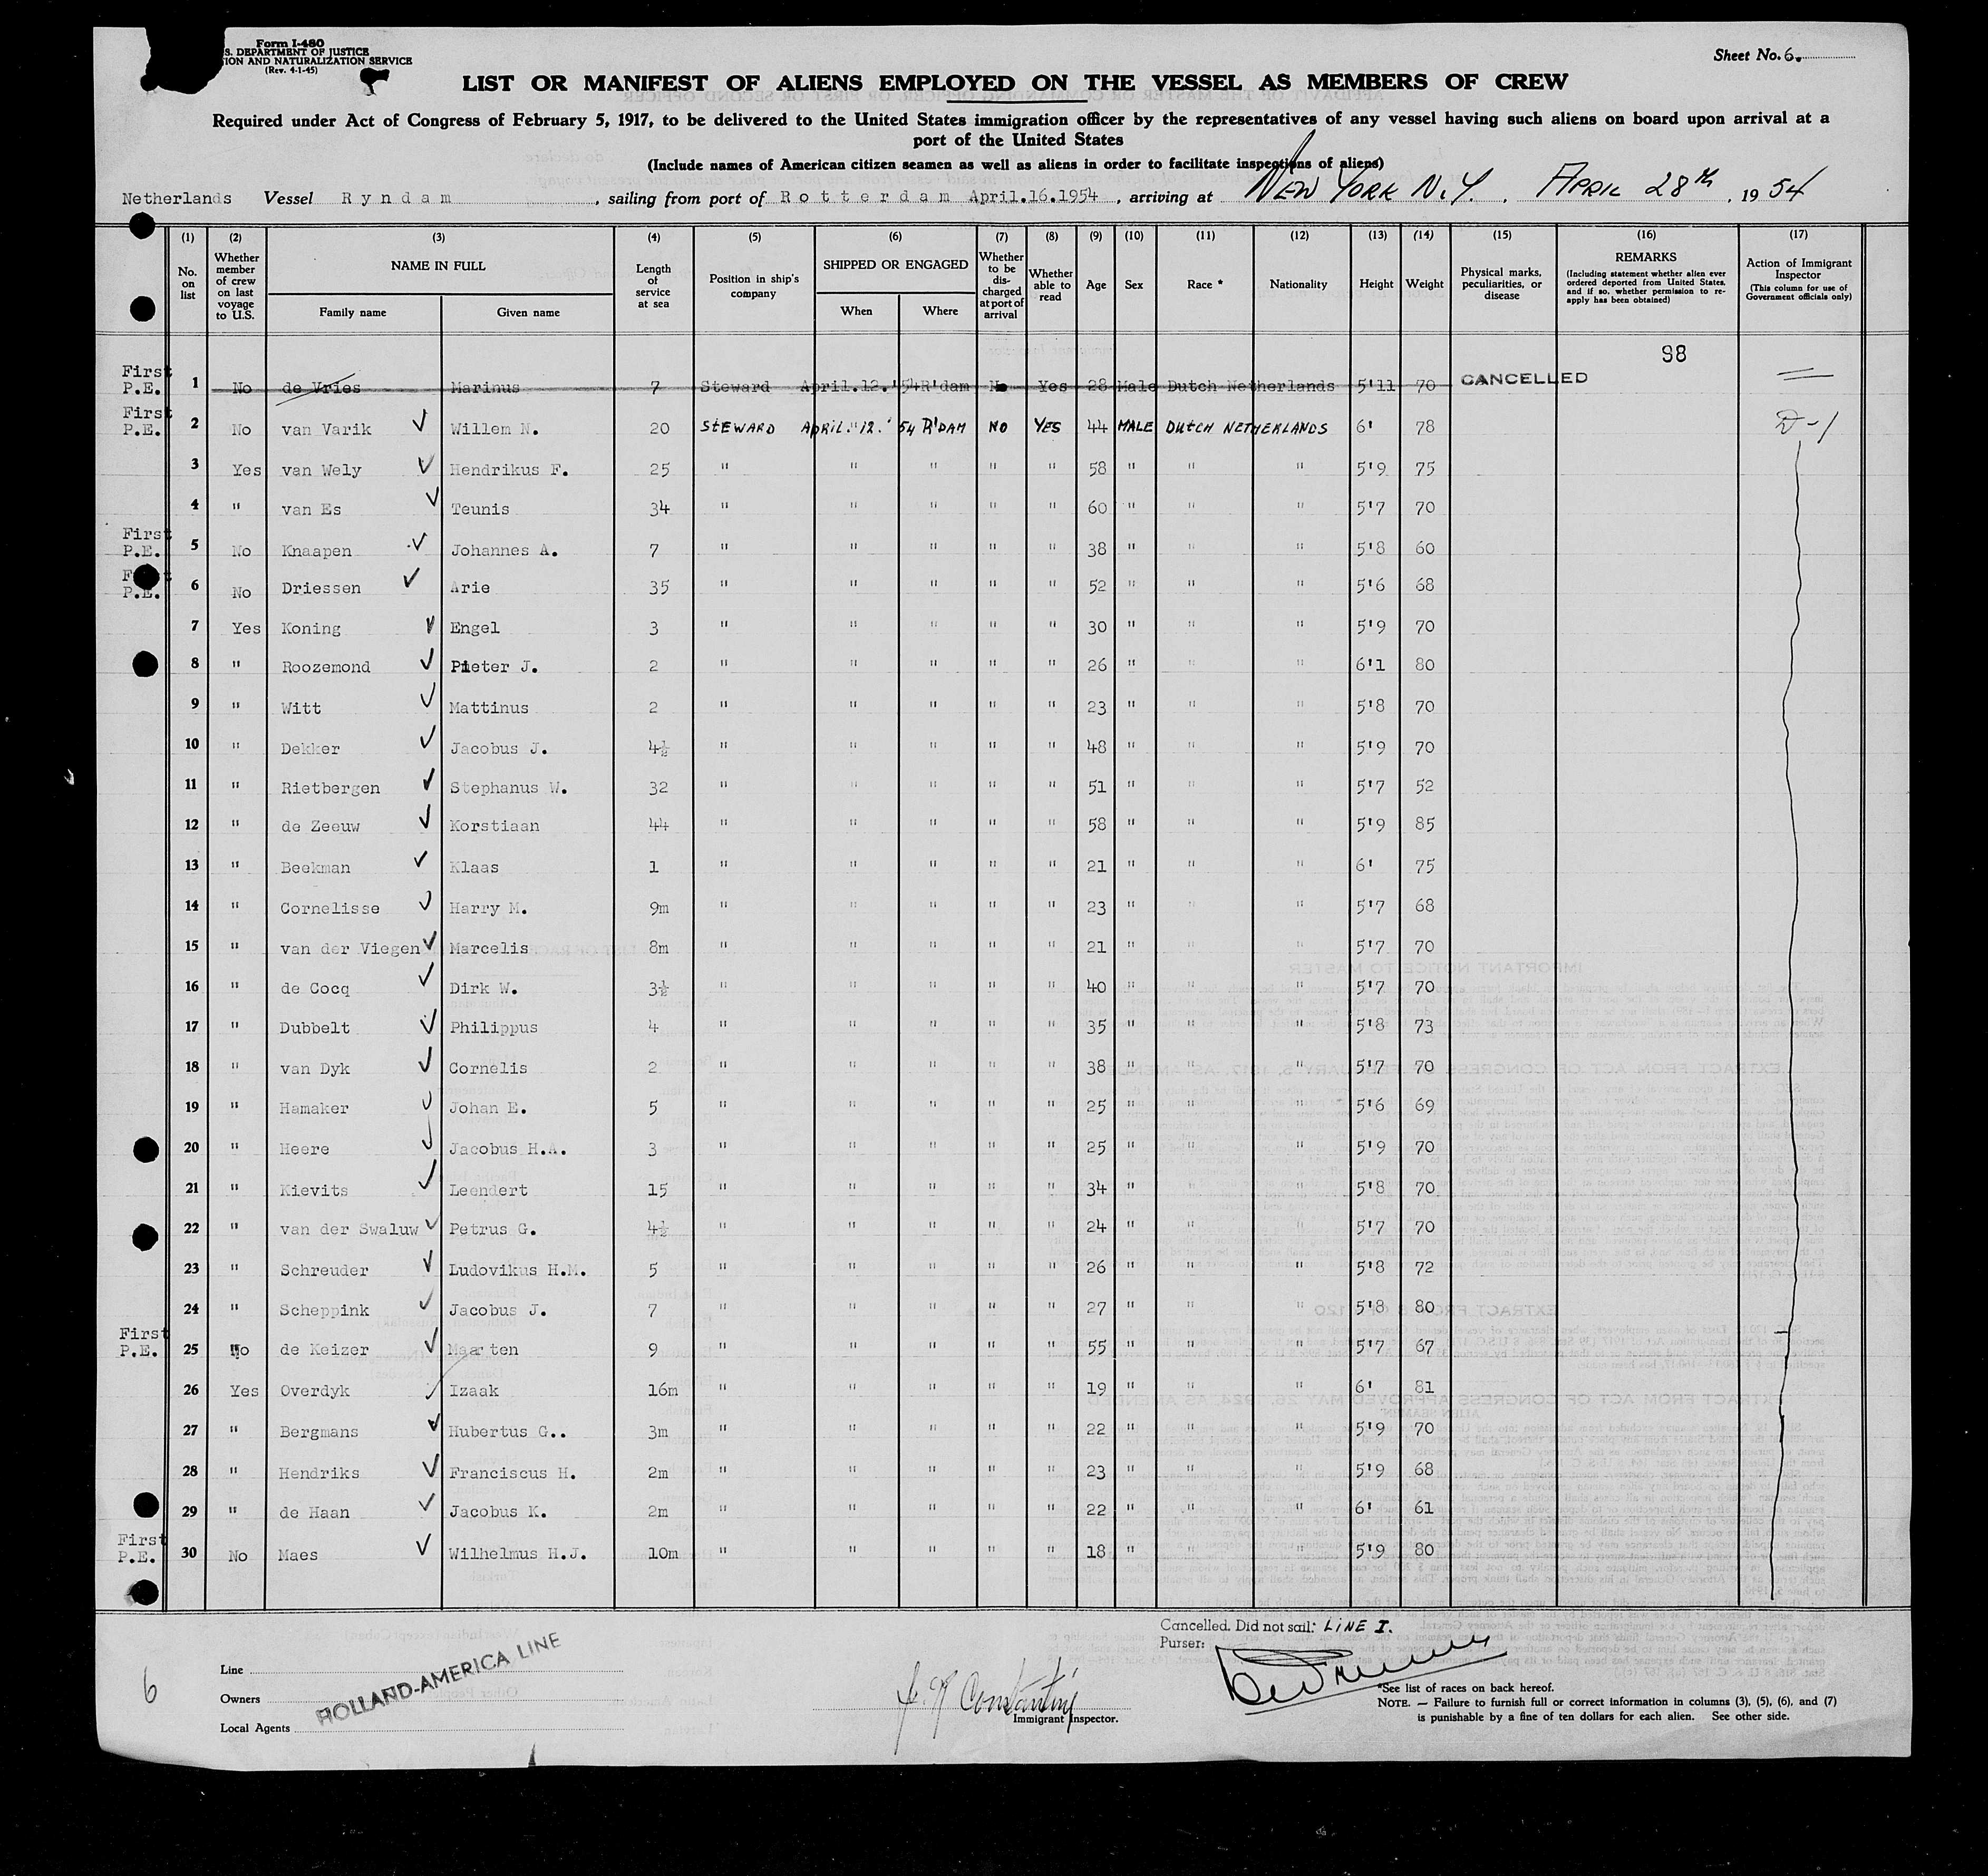 Form I-480
S. DEPARTMENT OF JUSTICE
ION AND NATURALIZATION SERVICE
(Rev. 4-1-45)
Sheet No. 6.
LIST OR MANIFEST OF ALIENS EMPLOYED ON THE VESSEL AS MEMBERS OF CREW
Required under Act of Congress of February 5, 1917, to be delivered to the United States immigration officer by the representatives of any vessel having such aliens on board upon arrival at a
port of the United States
(Include names of American citizen seamen as well as aliens in order to facilitate inspections of aliens)
Netherlands Vessel Ryndam , sailing from port of Rotterdam April.16.1954 , arriving at NEW YORK N.Y. , APRIL 28th , 19 54
(1) No. on list
(2) Whether member of crew on last voyage to U.S.
(3) NAME IN FULL Family name Given name
(4) Length of service at sea
(5) Position in ship's company
(6) SHIPPED OR ENGAGED When Where
(7) Whether to be discharged at port of arrival
(8) Whether able to read
(9) Age
(10) Sex
(11) Race *
(12) Nationality
(13) Height
(14) Weight
(15) Physical marks, peculiarities, or disease
(16) REMARKS (Including statement whether alien ever ordered deported from United States, and if so, whether permission to re-apply has been obtained)
(17) Action of Immigrant Inspector (This column for use of Government officials only)
98
First P.E. 1 No de Vries Marinus 7 Steward April.12.'54 R'dam No Yes 28 Male Dutch Netherlands 5'11 70 CANCELLED
First P.E. 2 No van Varik Willem N. 20 STEWARD APRIL."12.'54 R'DAM NO YES 44 MALE DUTCH NETHERLANDS 6' 78 D-1
3 Yes van Wely Hendrikus F. 25 " " " " " 58 " " " 5'9 75
4 " van Es Teunis 34 " " " " " 60 " " " 5'7 70
First P.E. 5 No Knaapen Johannes A. 7 " " " " " 38 " " " 5'8 60
First P.E. 6 No Driessen Arie 35 " " " " " 52 " " " 5'6 68
7 Yes Koning Engel 3 " " " " " 30 " " " 5'9 70
8 " Roozemond Pieter J. 2 " " " " " 26 " " " 6'1 80
9 " Witt Mattinus 2 " " " " " 23 " " " 5'8 70
10 " Dekker Jacobus J. 4½ " " " " " 48 " " " 5'9 70
11 " Rietbergen Stephanus W. 32 " " " " " 51 " " " 5'7 52
12 " de Zeeuw Korstiaan 44 " " " " " 58 " " " 5'9 85
13 " Beekman Klaas 1 " " " " " 21 " " " 6' 75
14 " Cornelisse Harry M. 9m " " " " " 23 " " " 5'7 68
15 " van der Viegen Marcelis 8m " " " " " 21 " " " 5'7 70
16 " de Cocq Dirk W. 3½ " " " " " 40 " " " 5'7 70
17 " Dubbelt Philippus 4 " " " " " 35 " " " 5'8 73
18 " van Dyk Cornelis 2 " " " " " 38 " " " 5'7 70
19 " Hamaker Johan E. 5 " " " " " 25 " " " 5'6 69
20 " Heere Jacobus H.A. 3 " " " " " 25 " " " 5'9 70
21 " Kievits Leendert 15 " " " " " 34 " " " 5'8 70
22 " van der Swaluw Petrus G. 4½ " " " " " 24 " " " 5'7 70
23 " Schreuder Ludovikus H.M. 5 " " " " " 26 " " " 5'8 72
24 " Scheppink Jacobus J. 7 " " " " " 27 " " " 5'8 80
First P.E. 25 No de Keizer Maarten 9 " " " " " 55 " " " 5'7 67
26 Yes Overdyk Izaak 16m " " " " " 19 " " " 6' 81
27 " Bergmans Hubertus G.. 3m " " " " " 22 " " " 5'9 70
28 " Hendriks Franciscus H. 2m " " " " " 23 " " " 5'9 68
29 " de Haan Jacobus K. 2m " " " " " 22 " " " 6' 61
First P.E. 30 No Maes Wilhelmus H.J. 10m " " " " " 18 " " " 5'9 80
Cancelled. Did not sail: LINE I.
Purser:
6
Line
Owners
Local Agents
HOLLAND-AMERICA LINE
Immigrant Inspector.
*See list of races on back hereof.
NOTE. — Failure to furnish full or correct information in columns (3), (5), (6), and (7)
is punishable by a fine of ten dollars for each alien. See other side.